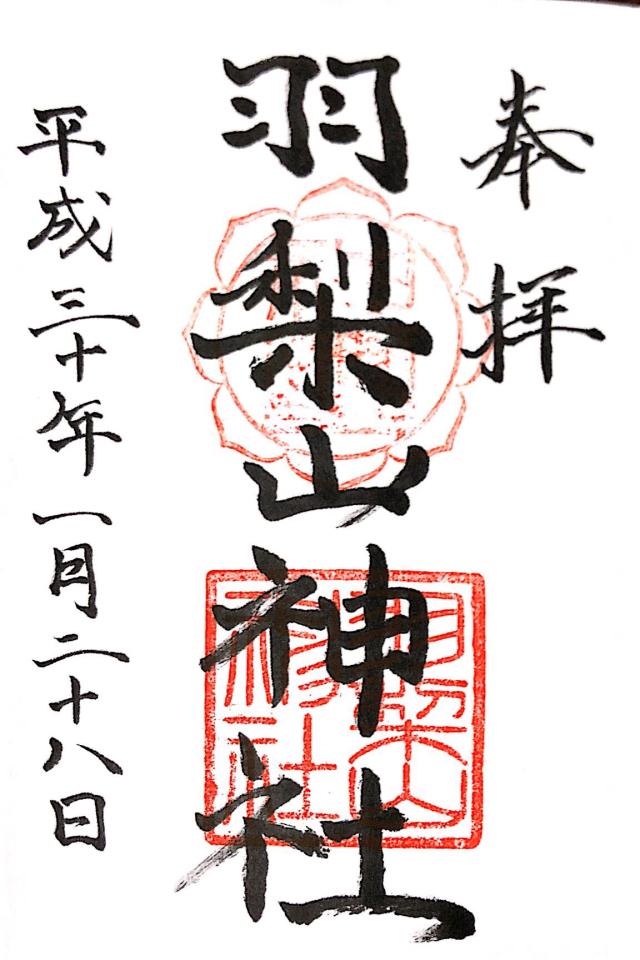 奉拝
羽梨山神社
平成三十年一月二十八日
羽梨山神社